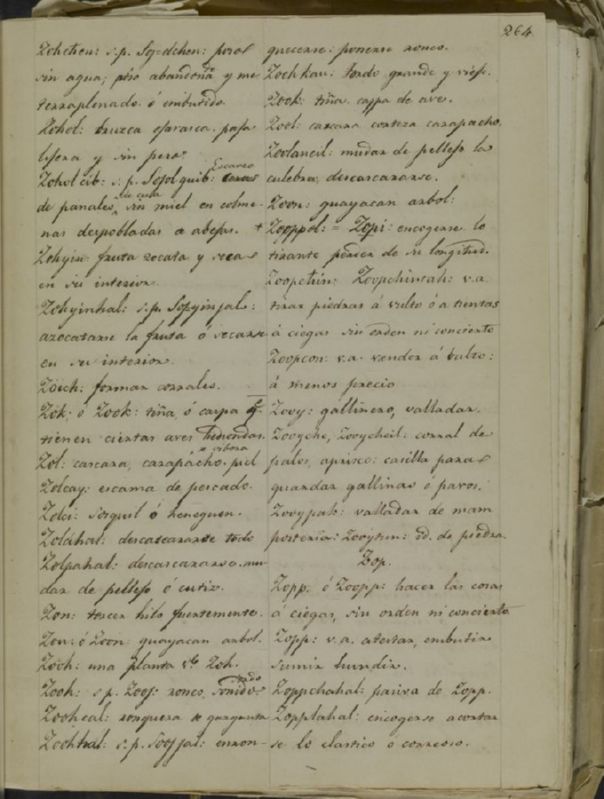 264
Zohchen: s.p. Sojochen: pozo
sin agua; abandon y me
terraplenado ó embutido
Zohol: brusca paja
y sin pero
Zohol cib: s.p. Sojol quib: Escaseo
de panales, sin miel en colme-
nas despobladas
Zohyin fruta zocata y seca
en su interior.
Zohyinhal: s.p. Sojyinjal:
azocatarse la fruta ó secarse
en su interior.
Zoich: formar corrales.
Zok: ó Zook: tiña, ó caspa q.e
tienen ciertas aves hediondas.
ó vibora
Zol: cascara, carapacho, piel
Zolcay: escama de pescado.
Zolci: Sosquil ó henequen.
Zoláhal: descascararse todo
Zolpahal: descascararse, mu-
dar de pellejo ó cutiz.
Zon: torcer hilo fuertemente.
Zon: ó Zoon: guayacan arbol.
Zooh: una planta Zoh.
Zooh: s.p. Zooj: ronco, sonido
Zoohcal: ronquera de garganta
Zoohhal: s.p. Soojjal: enron-
quecerse: ponerse ronco.
Zoohkau: tordo grande y viejo.
Zook: tiña, caspa de ave.
Zool: cascara corteza carapacho.
Zoolancil: mudar de pellejo la
culebra, descascararse.
Zoon: guayacan arbol:
+ Zooppol: = Zopi: encogerse lo
tirante de su longitud.
Zoopchin: Zoopchintah: v.a.
tirar piedras á vulto ó a tientas
á ciegas sin orden ni concierto
Zoopcon: v.a. vender á bulto:
á menos precio
Zooy: gallinero, valladar.
Zooyche, Zooycheil: corral de
palos, aprisco: casilla para
guardar gallinas ó pavos.
Zooypak: valladar de mam
posteria: Zooytun: id. de piedra.
Zop.
Zopp. ó Zoopp: hacer las cosas
á ciegas, sin orden ni concierto
Zopp: v.a. atestar, embutir
sumir hundir.
Zoppchahal: pasiva de Zopp.
Zopplahal: encogerse acortar
se lo elastico ó correoso.